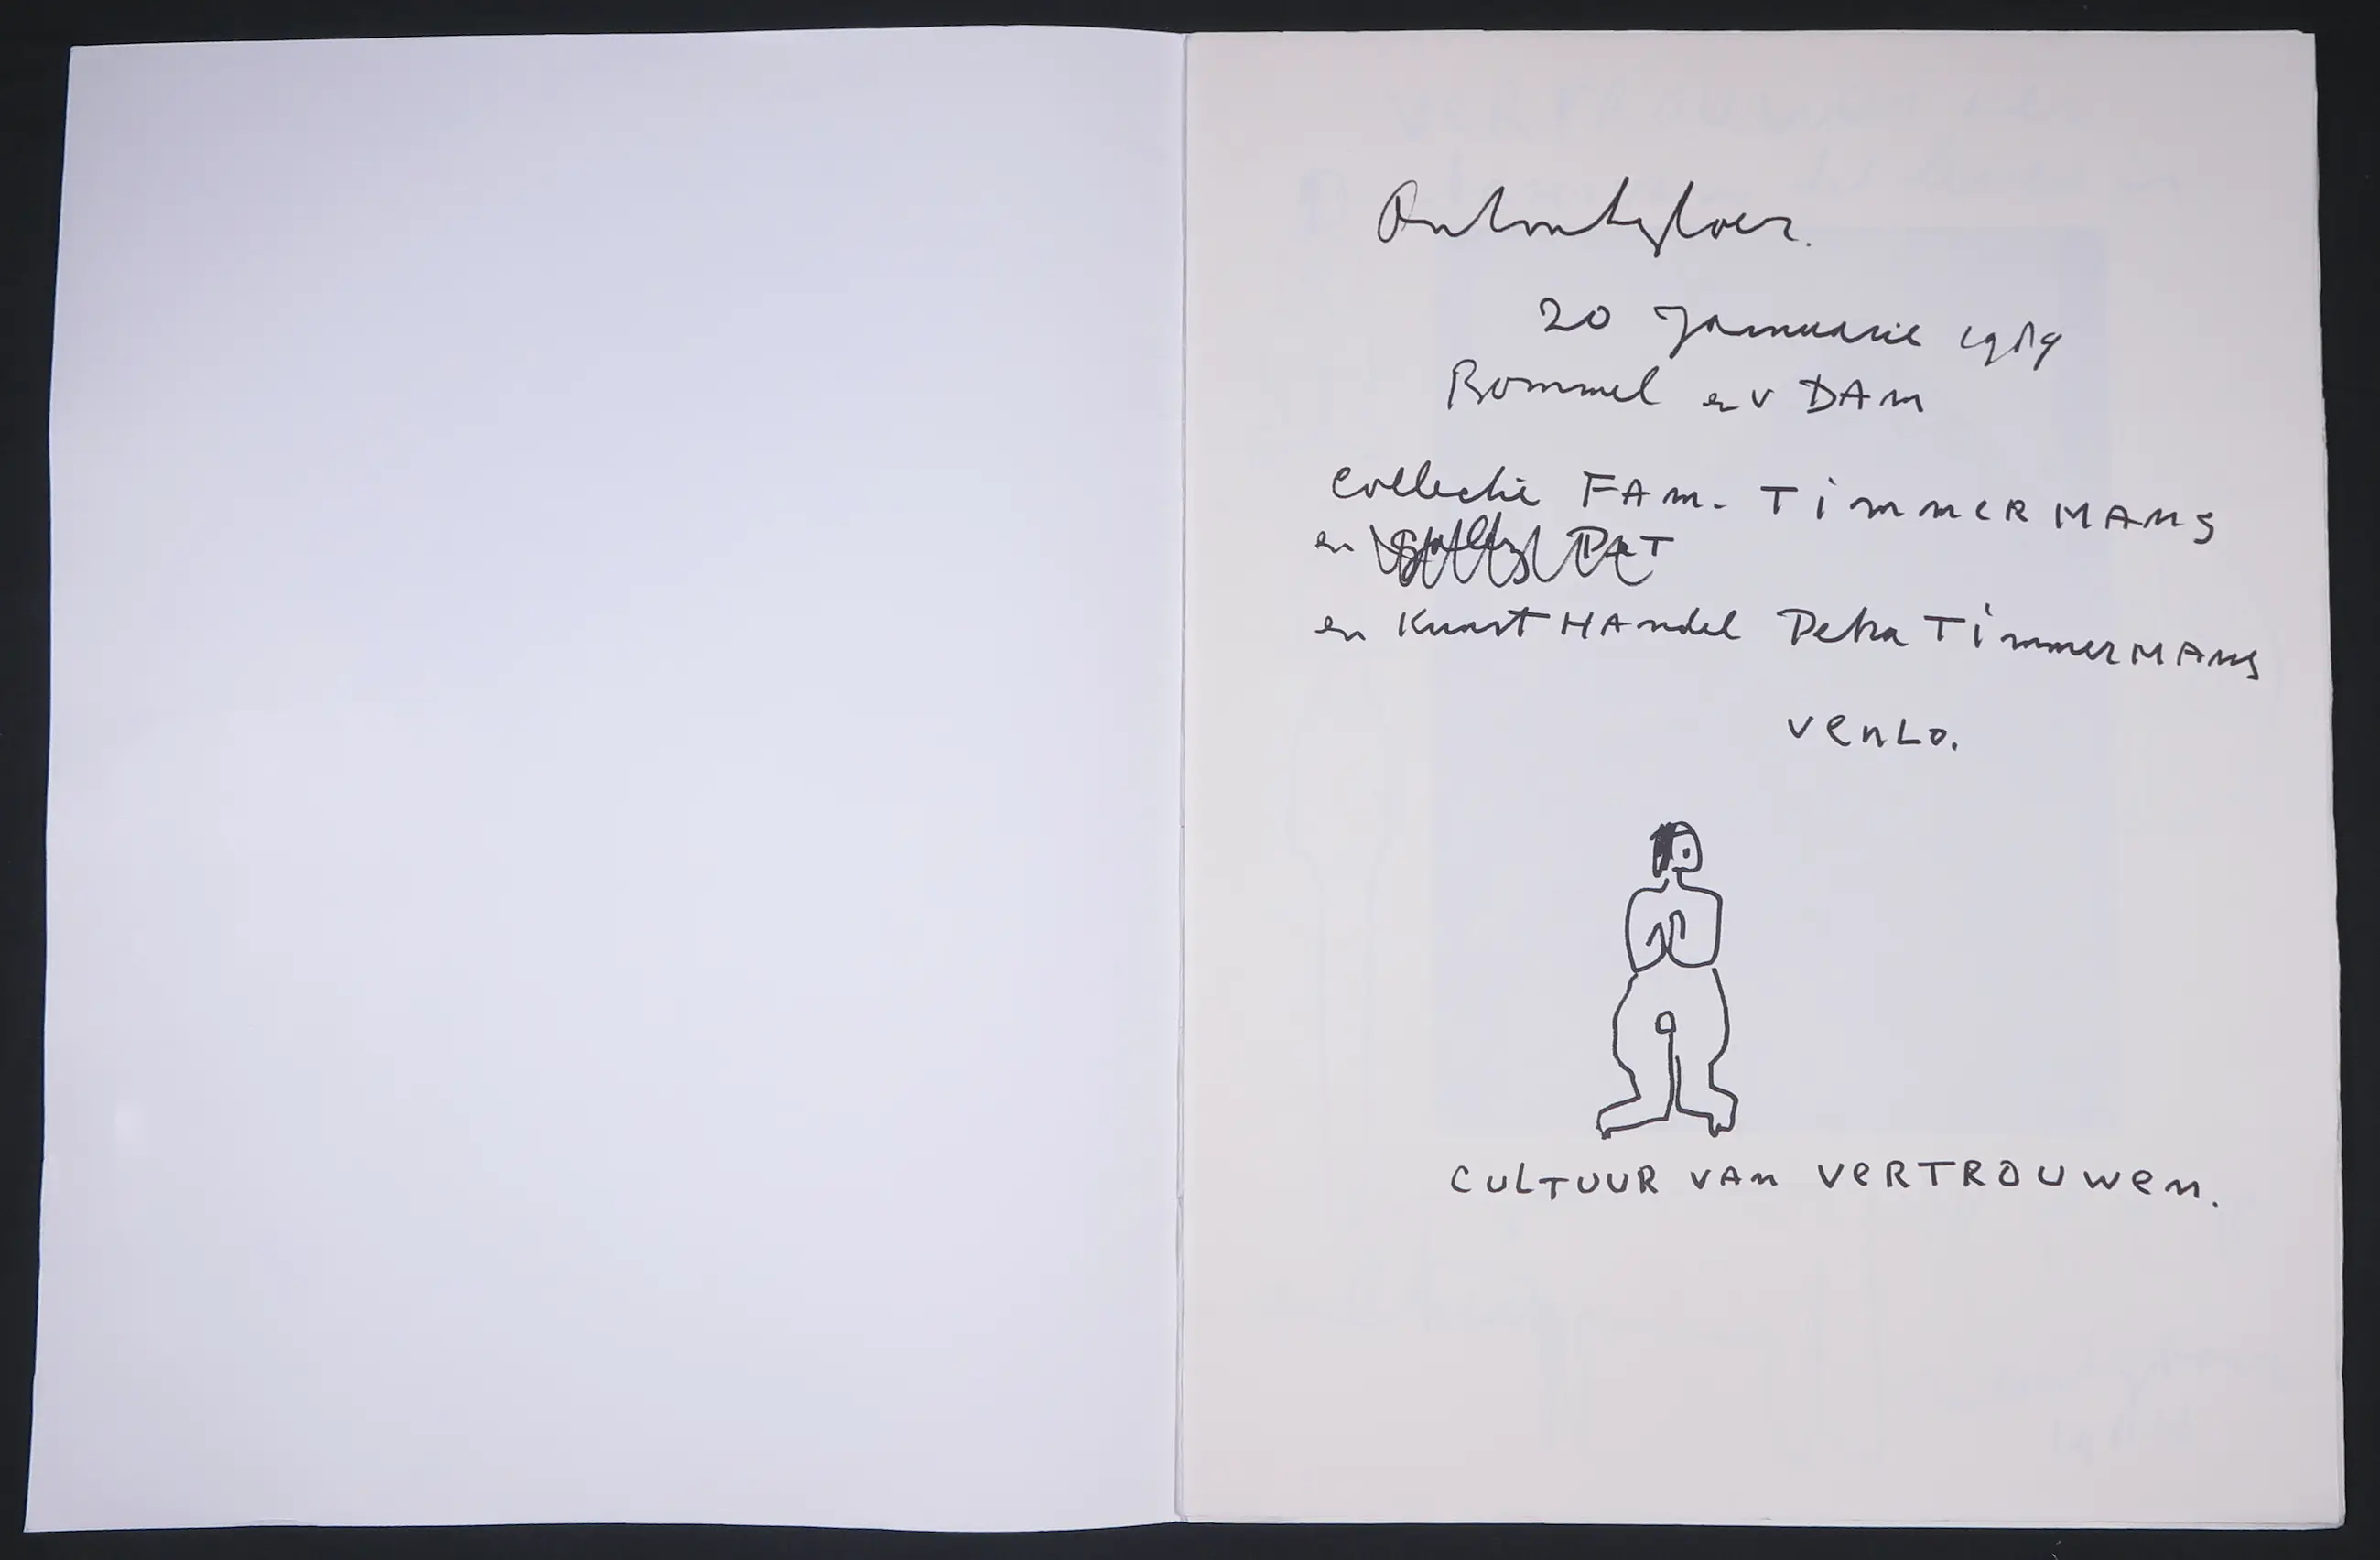 20 Januarie 1989
Rommel en v DAm
Collectie FAm. TimmeRMANS
en
en KunstHAndel Petra TimmerMANS
VenLo.
CULTUUR VAn VeRTROUWen.